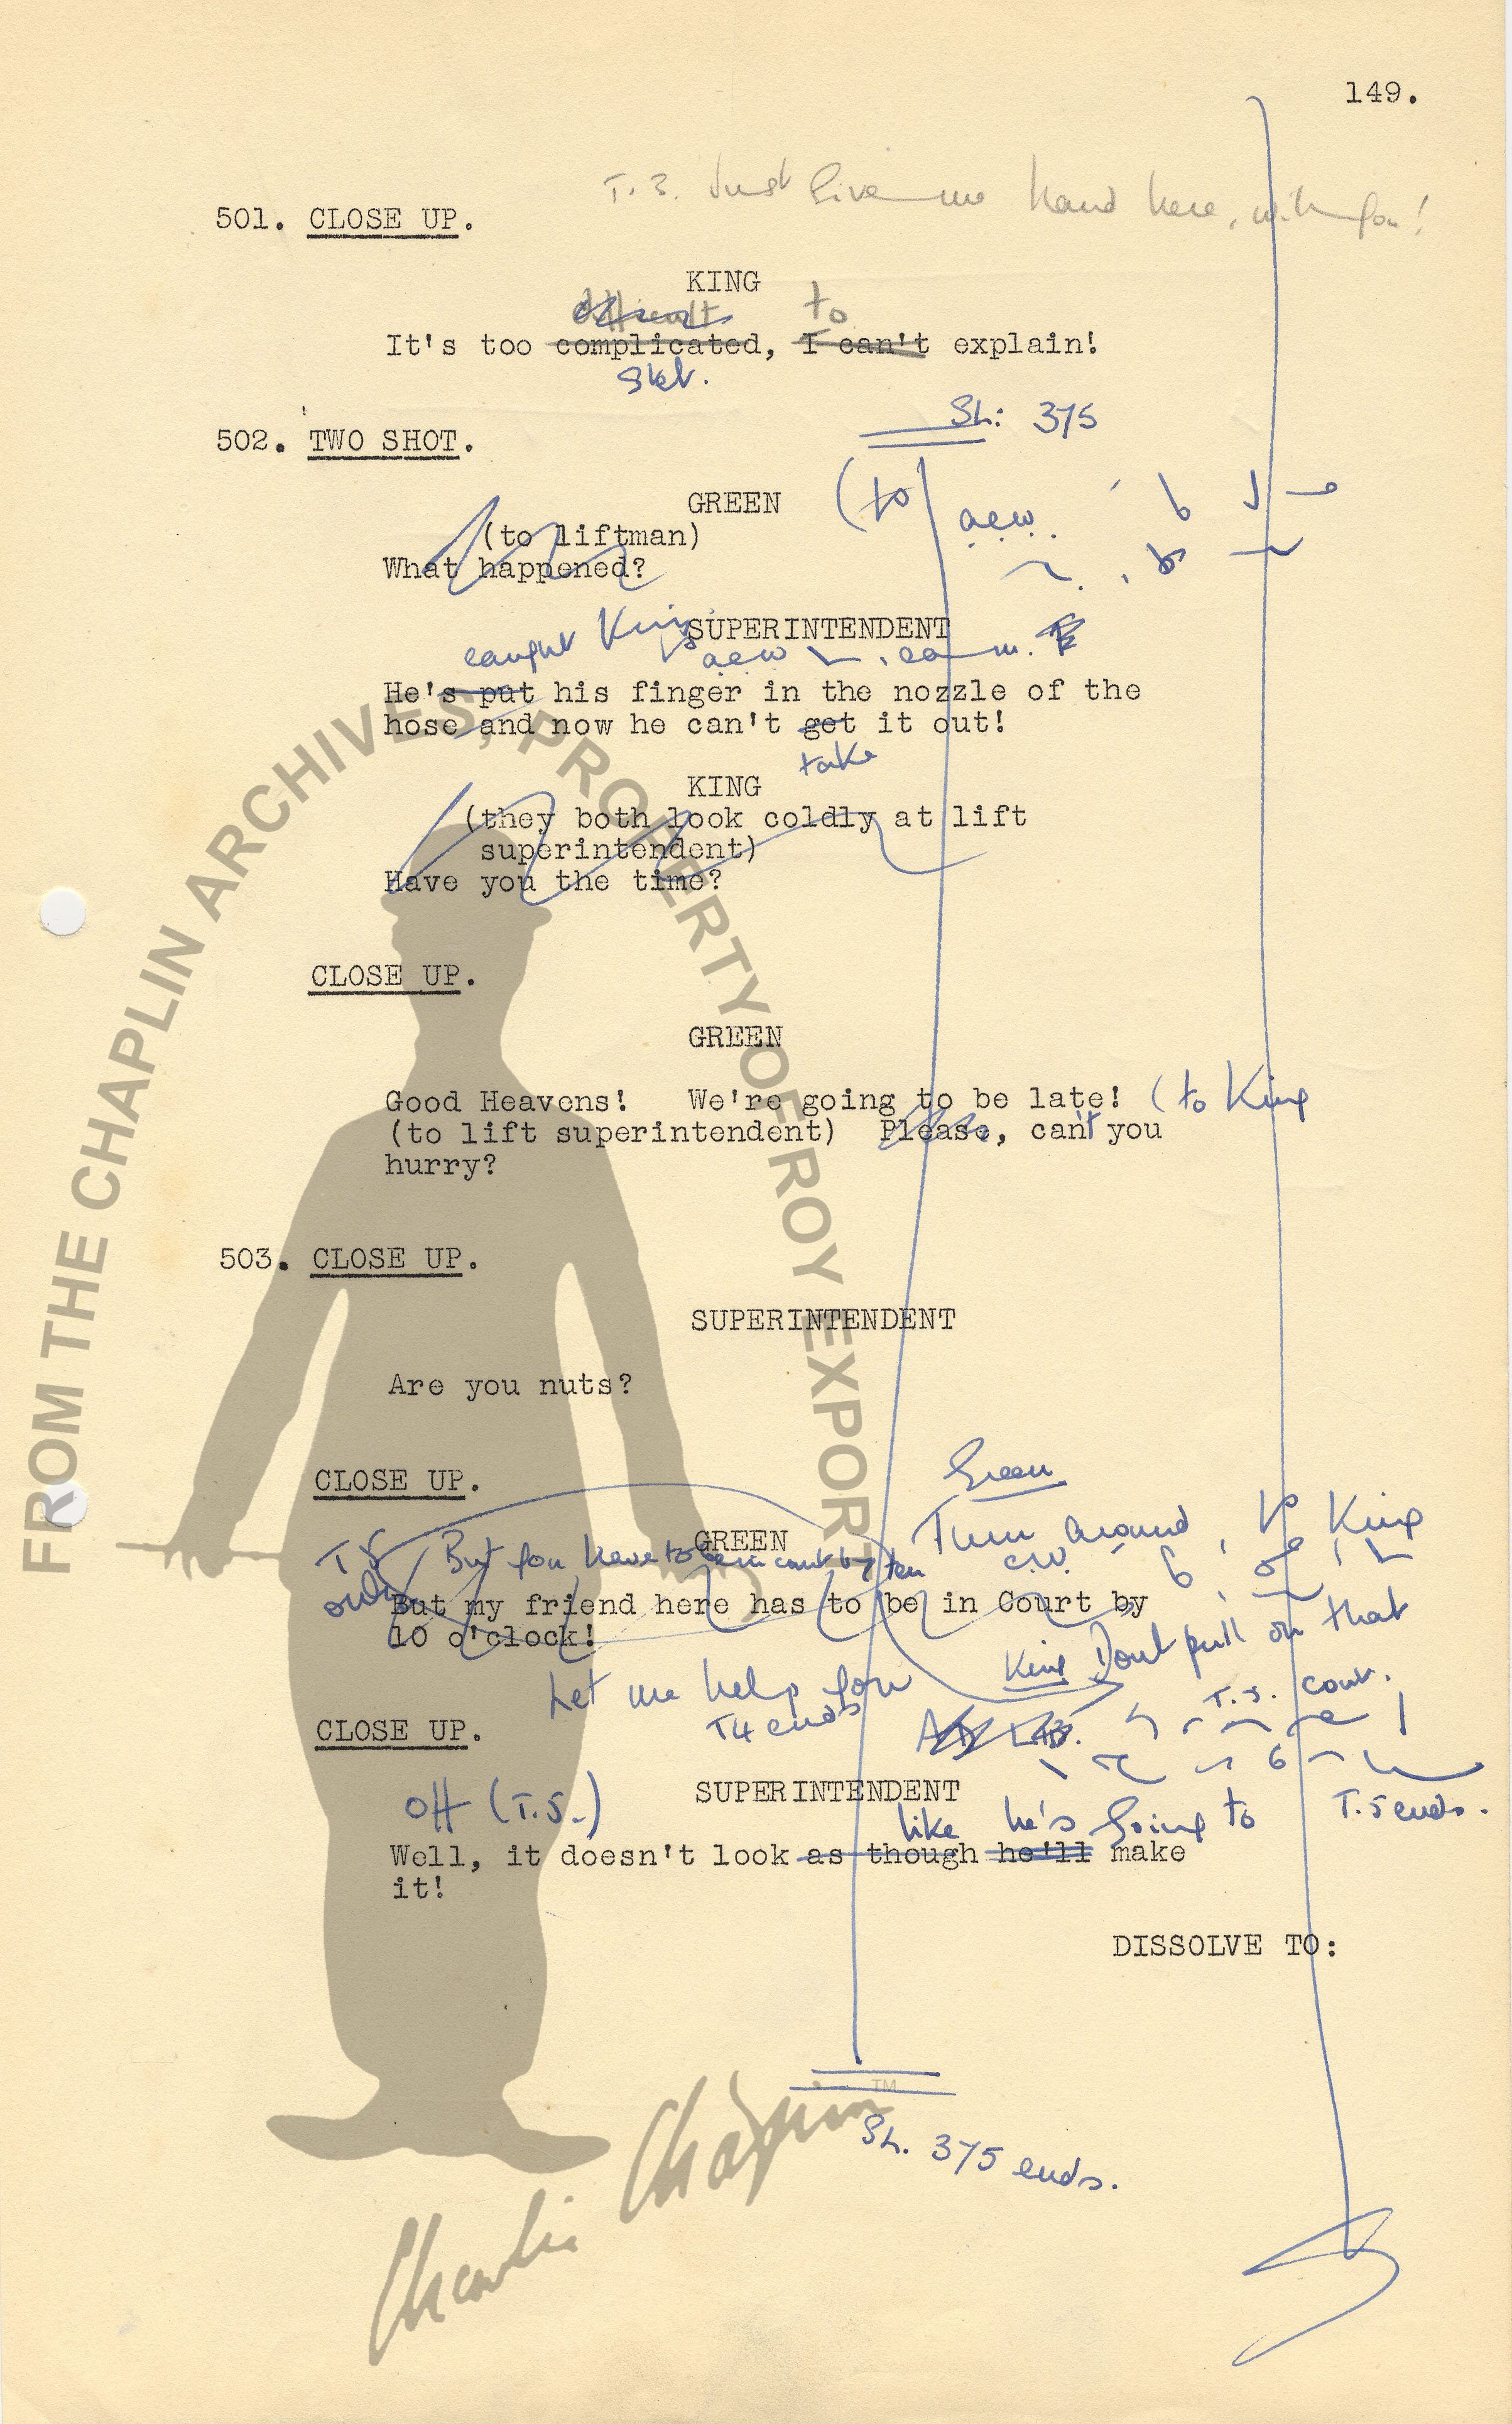 149.
T. 3. Just Give me hand here, will you!
501. CLOSE UP.
KING
difficult to
It's too complicated, I can't explain!
Sh: 375
502. TWO SHOT.
GREEN (to
(to liftman)
What happened?
caught King's
SUPERINTENDENT
He's put his finger in the nozzle of the
hose and now he can't get it out!
take
KING
(they both look coldly at lift
superintendent)
Have you the time?
CLOSE UP.
GREEN
Good Heavens! We're going to be late! (to King
(to lift superintendent) Please, can't you
hurry?
503. CLOSE UP.
SUPERINTENDENT
Are you nuts?
Green
CLOSE UP.
Turn around, to King
GREEN
T 5 But you have to be in court by ten
only
But my friend here has to be in Court by
10 o'clock!
King Don't pull on that
Let me help you
T4 ends
T. 5. cont.
CLOSE UP.
SUPERINTENDENT
off (T.5.)
like he's going to
T. 5 ends.
Well, it doesn't look as though he'll make
it!
DISSOLVE TO:
Sh. 375 ends.
FROM THE CHAPLIN ARCHIVES, PROPERTY OF ROY EXPORT
Charlie Chaplin TM